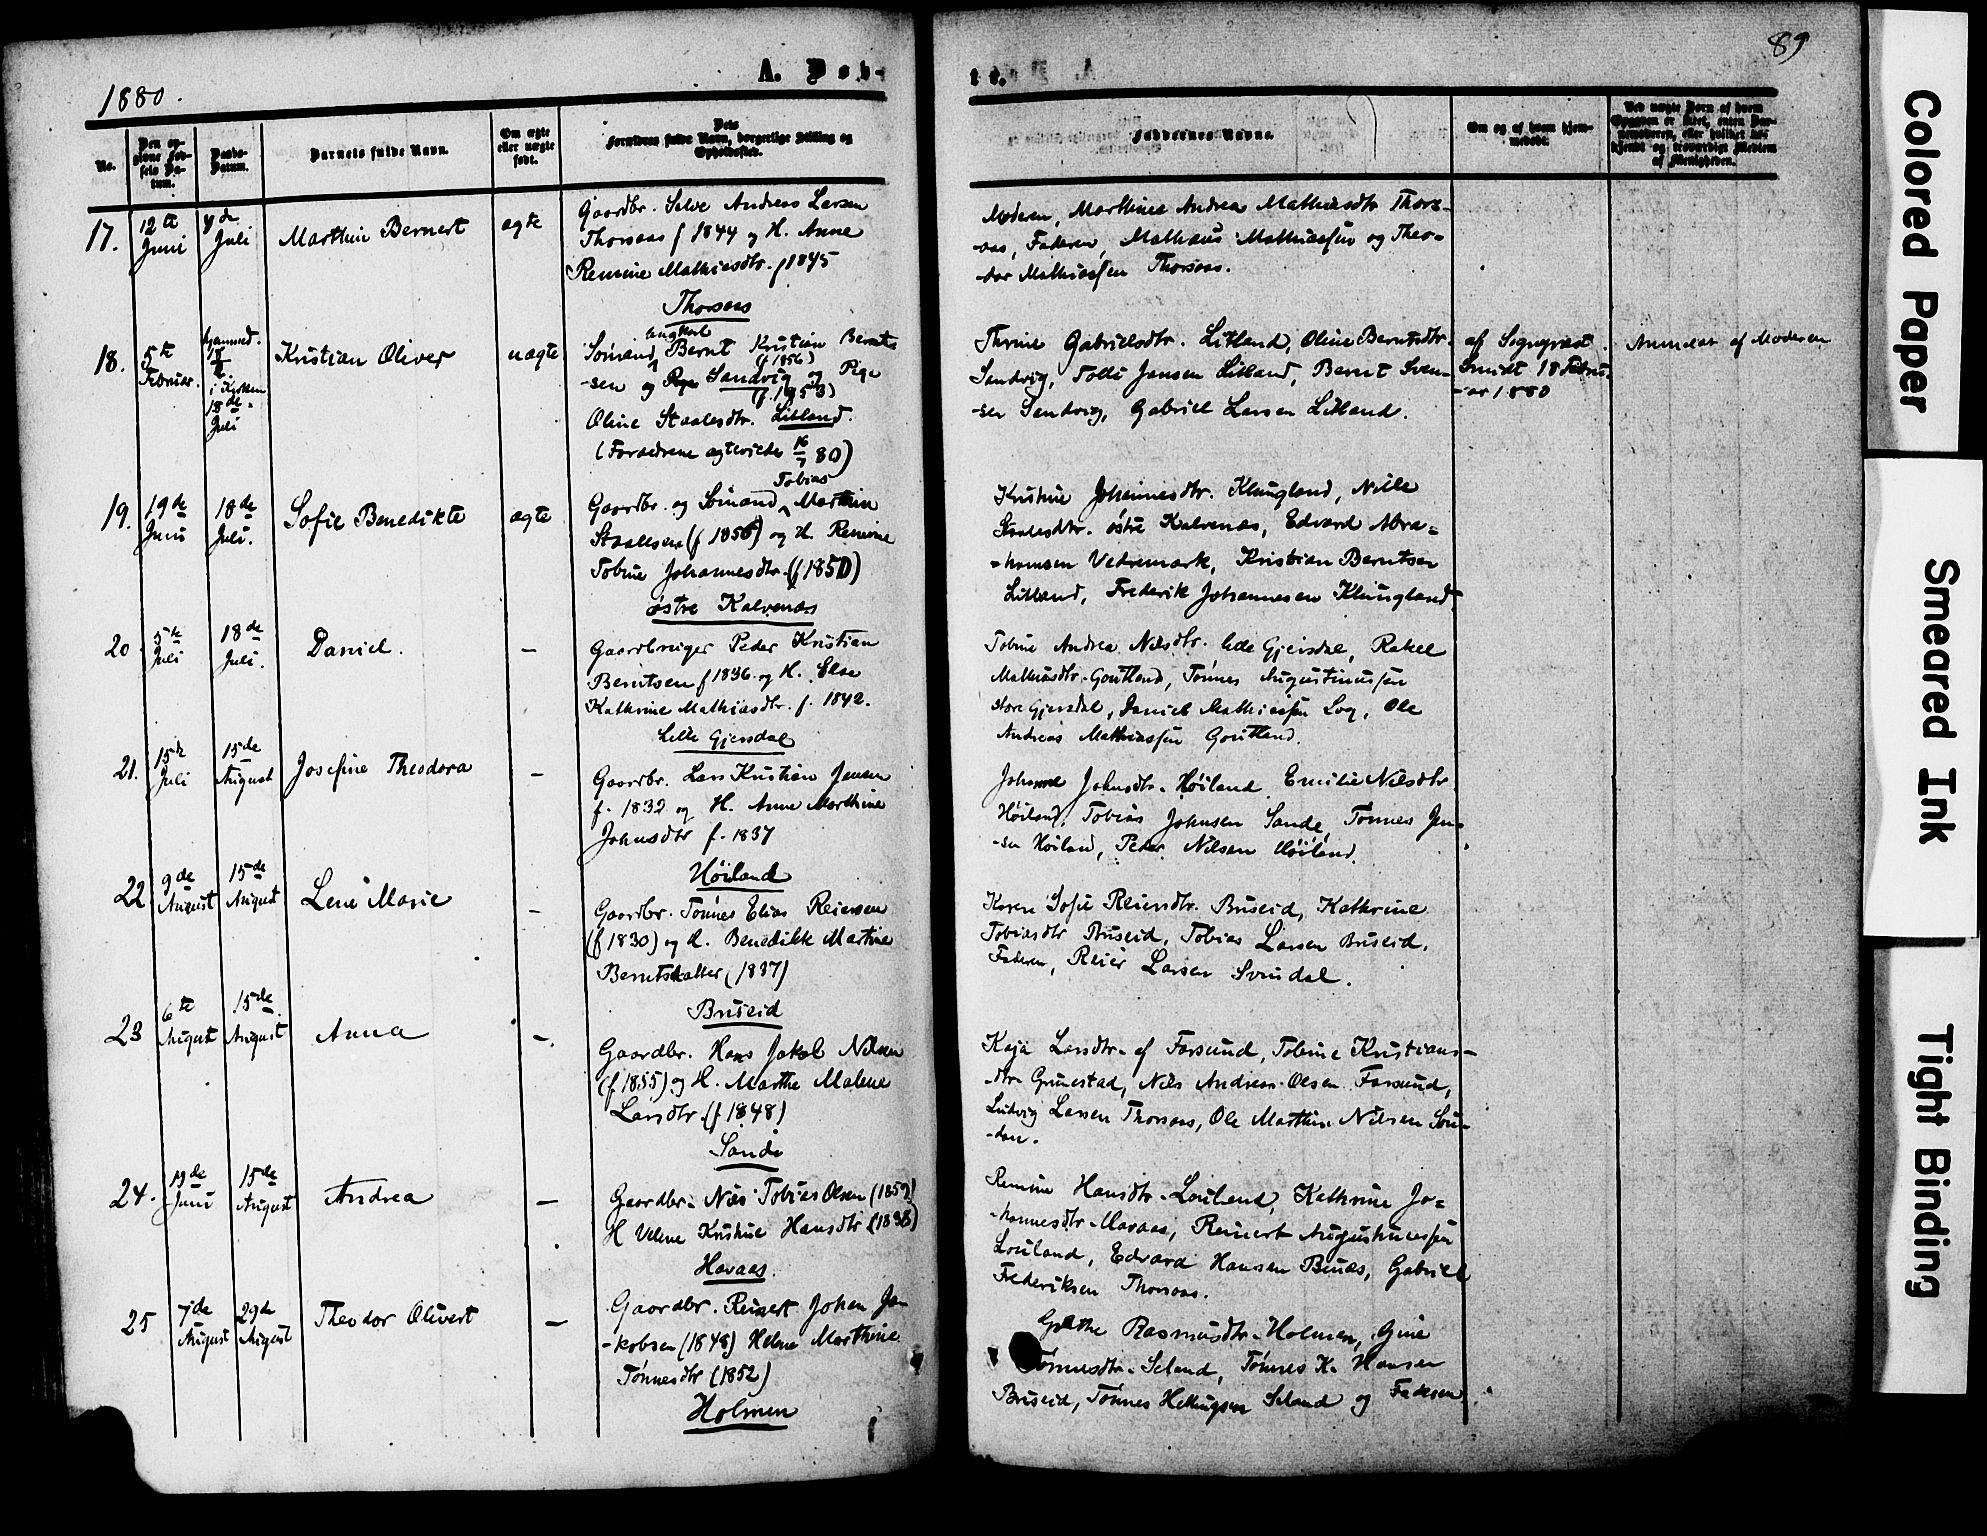 1880.
A. Døb-
te.
89
No.
Den op-
givne Fød-
sels Da-
tum.
Daabs-
Datum.
Barnets fulde Navn.
Om ægte
eller uægte
født.
Dets
Forældres fulde Navn, borgerlige Stilling og
Opholdssted.
Faddernes Navne.
Om og af hvem hjem-
medøbt.
Ved uægte Børn af hvem
Opgaven er skeet, enten Bar-
nemoderen, eller hvilket be-
kjendt og troværdigt Medlem
af Menigheden.
17.
12te
Juni
4de
Juli
Marthin Bernert
ægte
Gaardbr. Salve Andreas Larsen
Thorsaas f 1844 og H. Anne
Remine Mathiasdtr. f 1845
Thorsaas
Moderen, Marthine Andrea Mathiasdtr Thors-
aas, Faderen, Mathæus Mathiassen og Theo-
dor Mathiassen Thorsaas.
18.
5te
Februar.
hjemmed.
18/2
i Kirken
18de
Juli
Kristian Oliver
uægte
ungkarl
Sømand Bernt Kristian Bernt-
(f 1856)
sen og Pige Sandvig og Pige
(f. 1853)
Oline Staalesdtr. Litland.
(Forældrene ægteviede 16/7 80)
Thrine Gabrielsdtr. Litland, Oline Berntsdtr.
Sandvig, Tolli Jansen Litland, Bernt Sven-
sen Sandvig, Gabriel Larsen Litland.
af Sognepræst
Smidt 18 Febru-
-ar 1880
Anmeldt af Moderen
19.
19de
Juni
18de
Juli.
Sofie Benedikte
ægte
Tobias
Gaardbr. og Sømand Marthin
Staalesen (f 1856) og H. Remine
Tobine Johannesdtr. (f 1850)
østre Kalvenæs
Kristine Johannesdtr. Klungland, Nille
Staalesdtr. østre Kalvenæs, Edvard Abra-
-hamsen Vedremark, Kristian Berntsen
Litland, Frederik Johannesen Klungland
20
5te
Juli
18de
Juli.
Daniel.
-
Gaardbruger Peder Kristian
Berntsen f 1836. og H. Else
Kathrine Mathiasdtr. f. 1842.
Lille Gjersdal
Tobine Andrea Nilsdtr. lille Gjersdal, Rakel
Mathiasdtr. Goutland, Tønnes Augustinussen
store Gjersdal, Daniel Mathiassen Log, Ole
Andreas Mathiassen Goutland.
21.
15de
Juli
15de
August
Josefine Theodora
-
Gaardbr. Lars Kristian Jensen
f. 1832 og H. Anne Marthine
Johnsdtr f. 1837
Høiland
Johanne Johnsdtr. Høiland, Emilie Nilsdtr.
Høiland, Tobias Johnsen Sande, Tønnes Jen-
sen Høiland, Peder Nilsen Høiland.
22
9de
August
15de
August
Lene Marie
-
Gaardbr. Tønnes Elias Reiersen
(f 1830) og H. Benedikte Martine
Berntsdatter (1837)
Buseid
Karen Sofie Reiersdtr. Buseid, Kathrine
Tobiasdtr Buseid, Tobias Larsen Buseid,
Faderen, Reier Larsen Svindal.
23
6te
August
15de
August
Anna
-
Gaardbr. Hans Jakob Nilsen
(f 1855) og H. Marthe Malene
Larsdtr. (f 1848)
Sande
Kaja Larsdtr. af Farsund, Tobine Kristians-
dtr Grunestad, Nils Andreas Olsen Farsund,
Ludvig Larsen Thorsaas, Ole Marthin Nilsen Sun-
-den.
24.
19de
Juni
15de
August
Andrea
-
Gaardbr. Nils Tobias Olsen (1859)
H Velene Kristine Hansdtr (1838)
Havaas.
Remine Hansdtr. Louland, Kathrine Jo-
-hannesdtr. Havaas, Reinert Augustinussen
Louland, Edvard Hansen Buaas, Gabriel
Frederiksen Thorsaas.
25
7de
August
29de
August
Theodor Olivert
-
Gaardbr. Reinert Johan Ja-
-kobsen (1848) Helene Marthine
Tønnesdtr (1852)
Holmen
Grethe Rasmusdtr. Holmen, Gine
Tønnesdtr. Seland, Tønnes K. Hansen
Buseid, Tønnes Hellingsen Seland og Faderen
Colored Paper
Smeared Ink
Tight Binding